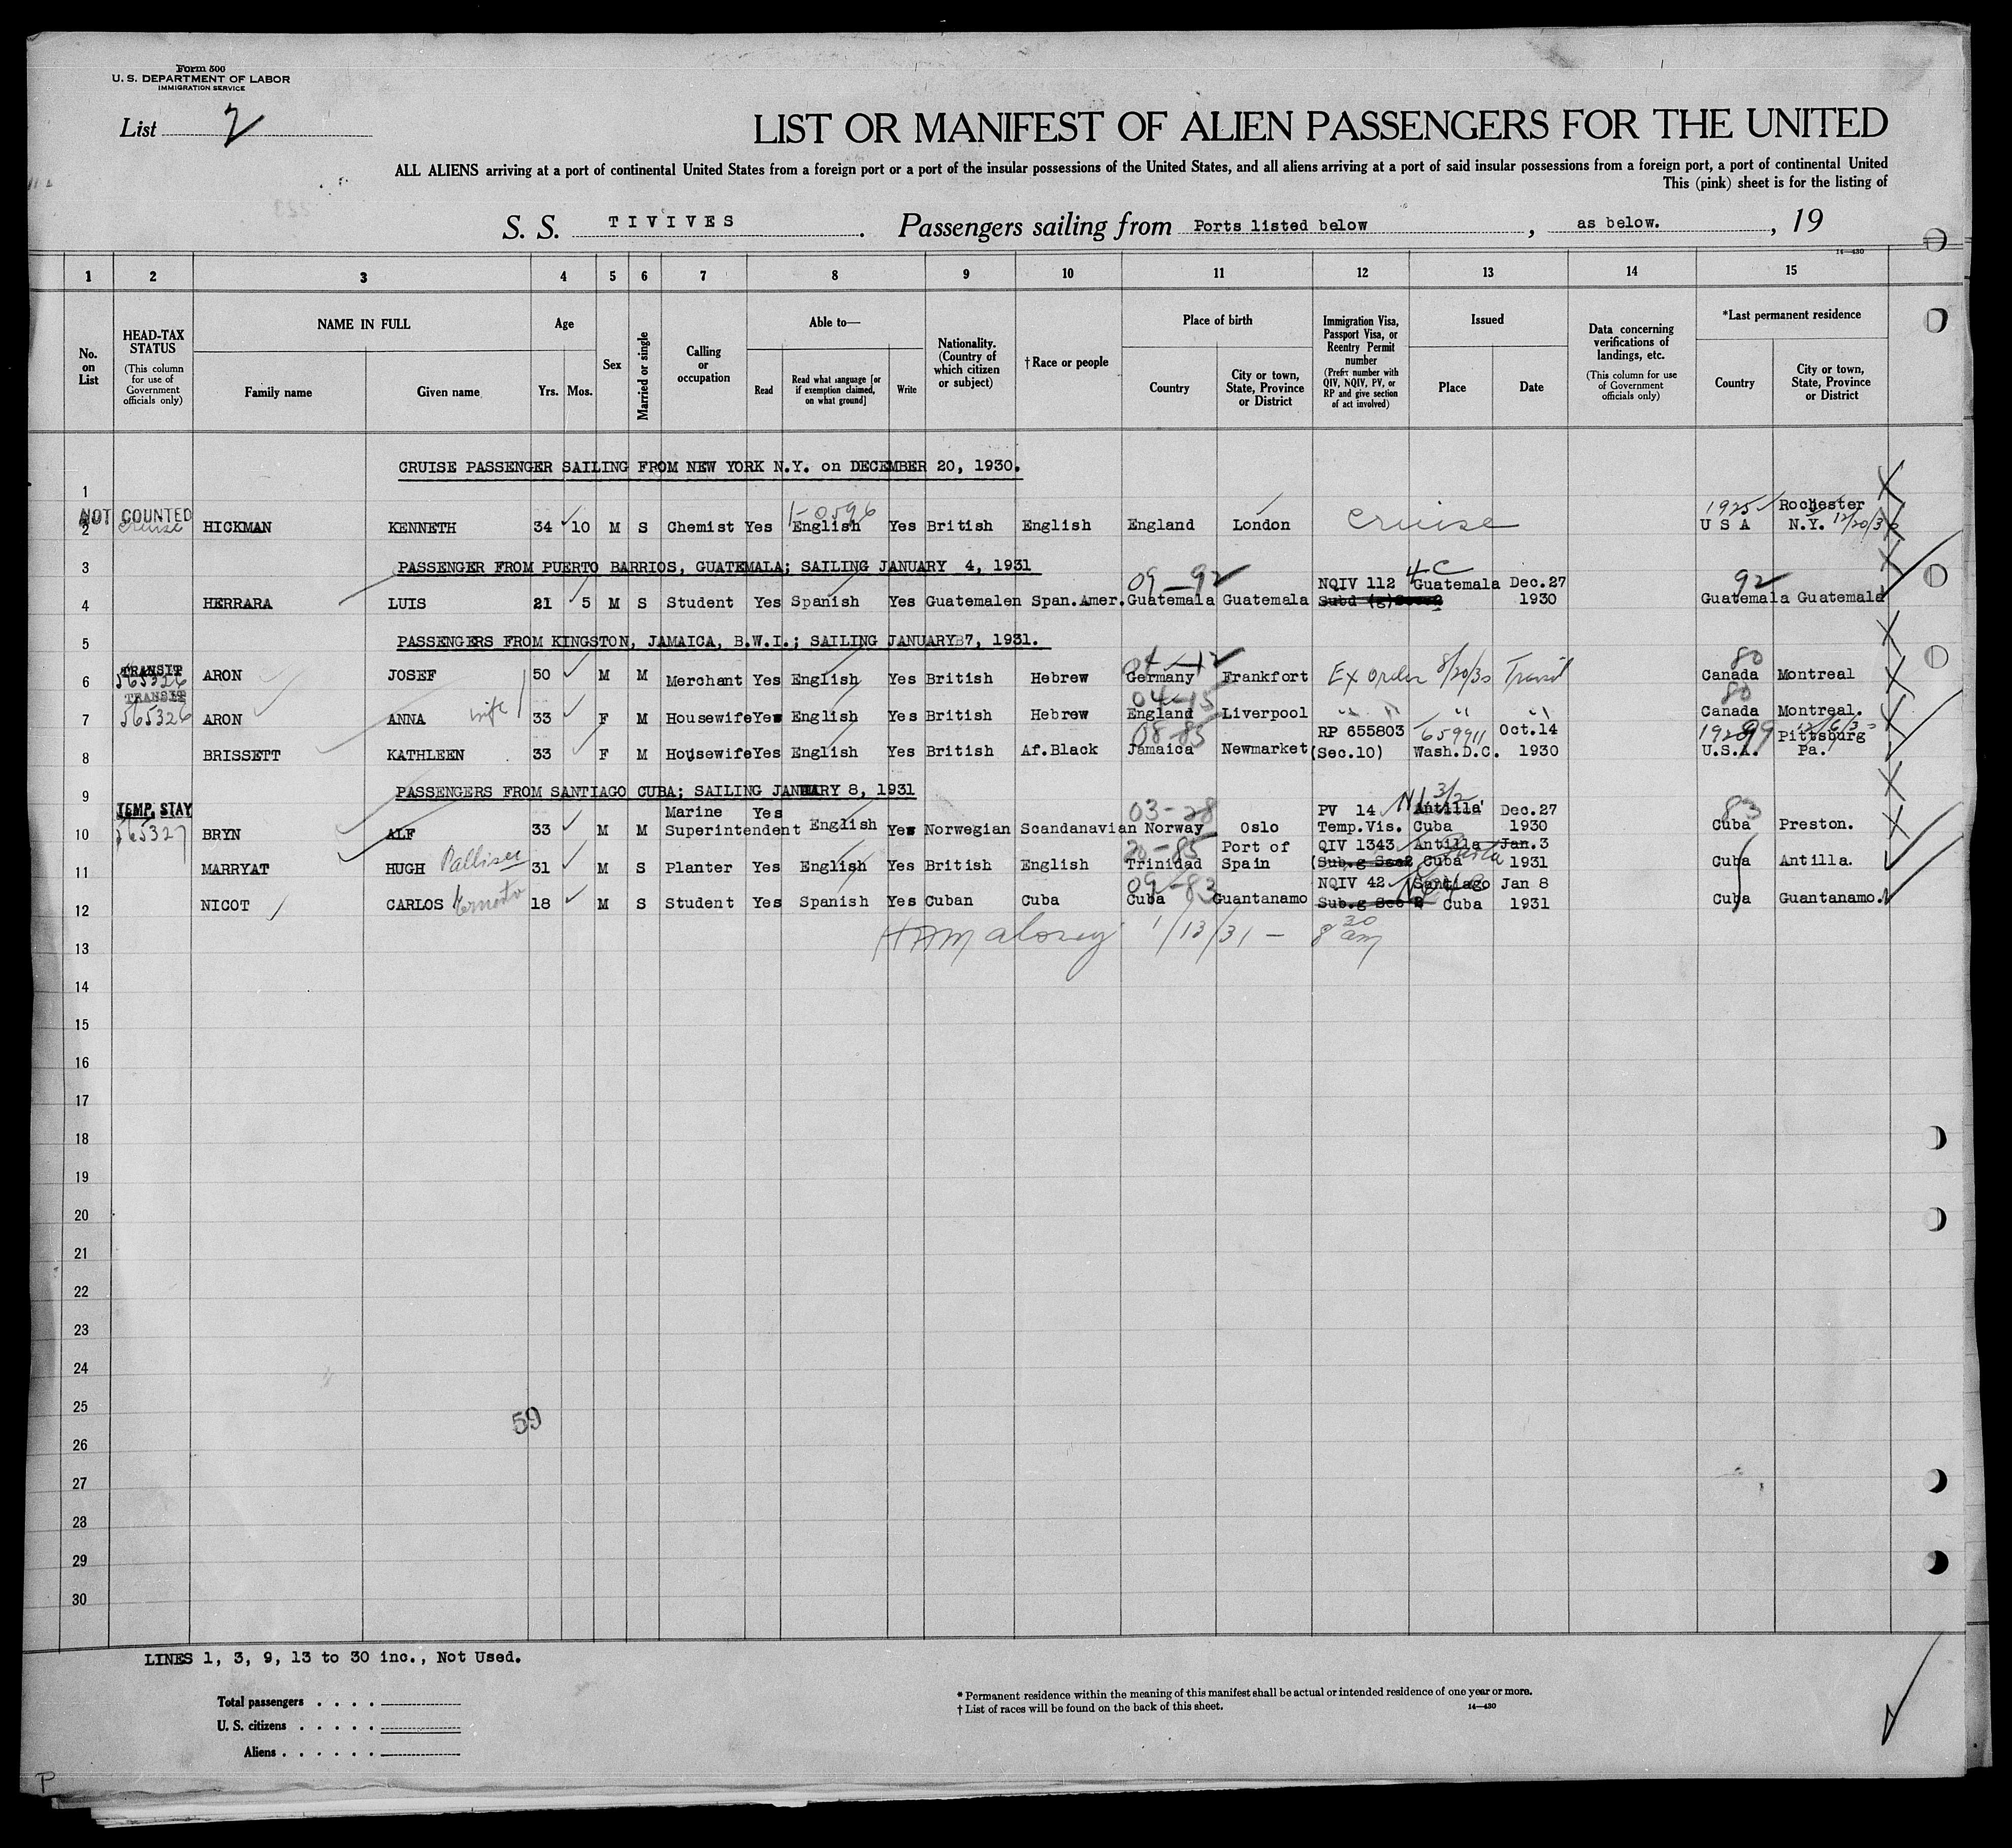 Form 500
U. S. DEPARTMENT OF LABOR
IMMIGRATION SERVICE
List 2
LIST OR MANIFEST OF ALIEN PASSENGERS FOR THE UNITED
ALL ALIENS arriving at a port of continental United States from a foreign port or a port of the insular possessions of the United States, and all aliens arriving at a port of said insular possessions from a foreign port, a port of continental United
This (pink) sheet is for the listing of
S. S. TIVIVES. Passengers sailing from Ports listed below, as below., 19
14—430
1 2 3 4 5 6 7 8 9 10 11 12 13 14 15
No. on List
HEAD-TAX STATUS
(This column for use of Government officials only)
NAME IN FULL
Family name
Given name
Age
Yrs. Mos.
Sex
Married or single
Calling or occupation
Able to—
Read
Read what language [or if exemption claimed, on what ground]
Write
Nationality. (Country of which citizen or subject)
†Race or people
Place of birth
Country
City or town, State, Province or District
Immigration Visa, Passport Visa, or Reentry Permit number
(Prefix number with QIV, NQIV, PV, or RP and give section of act involved)
Issued
Place
Date
Data concerning verifications of landings, etc.
(This column for use of Government officials only)
*Last permanent residence
Country
City or town, State, Province or District
CRUISE PASSENGER SAILING FROM NEW YORK N.Y. on DECEMBER 20, 1930.
1
NOT COUNTED 1-0596 1925 Rochester
2 cruise HICKMAN KENNETH 34 10 M S Chemist Yes English Yes British English England London cruise U S A N.Y. 12/20/30
3 PASSENGER FROM PUERTO BARRIOS, GUATEMALA; SAILING JANUARY 4, 1931
09-92 NQIV 112 4C Guatemala Dec.27 92
4 HERRARA LUIS 21 5 M S Student Yes Spanish Yes Guatemalen Span.Amer. Guatemala Guatemala Subd (g) 1930 Guatemala Guatemala
5 PASSENGERS FROM KINGSTON, JAMAICA, B.W.I.; SAILING JANUARYB7, 1931.
TRANSIT 04-12 80
6 565326 ARON JOSEF 50 M M Merchant Yes English Yes British Hebrew Germany Frankfort Ex order 8/20/30 Transit Canada Montreal
TRANSIT 04-15 80
7 565326 ARON ANNA wife 33 F M Housewife Yes English Yes British Hebrew England Liverpool " " " " Canada Montreal.
08-85 RP 655803 659911 Oct.14 99 Pittsburg
8 BRISSETT KATHLEEN 33 F M Housewife Yes English Yes British Af.Black Jamaica Newmarket (Sec.10) Wash.D.C. 1930 U.S.A. Pa.
9 PASSENGERS FROM SANTIAGO CUBA; SAILING JANUARY 8, 1931
TEMP. STAY Marine Yes 03-28 PV 14 3/2 Antilla Dec.27 83
10 565327 BRYN ALF 33 M M Superintendent English Yes Norwegian Scandanavian Norway Oslo Temp.Vis. Cuba 1930 Cuba Preston.
20-85 Port of QIV 1343 Antilla Jan.3
11 MARRYAT HUGH Palliser 31 M S Planter Yes English Yes British English Trinidad Spain (Sub.g Sec2 Cuba 1931 Cuba Antilla.
09-83 NQIV 42 Santiago Jan 8
12 NICOT CARLOS Ernesto 18 M S Student Yes Spanish Yes Cuban Cuba Cuba Guantanamo Sub.g Sec 2 Cuba 1931 Cuba Guantanamo.
13 1/13/31 - 8 30 am
14
15
16
17
18
19
20
21
22
23
24
25
59
26
27
28
29
30
LINES 1, 3, 9, 13 to 30 inc., Not Used.
Total passengers . . . .
U. S. citizens . . . . .
Aliens . . . . . .
* Permanent residence within the meaning of this manifest shall be actual or intended residence of one year or more.
† List of races will be found on the back of this sheet. 14—430
P